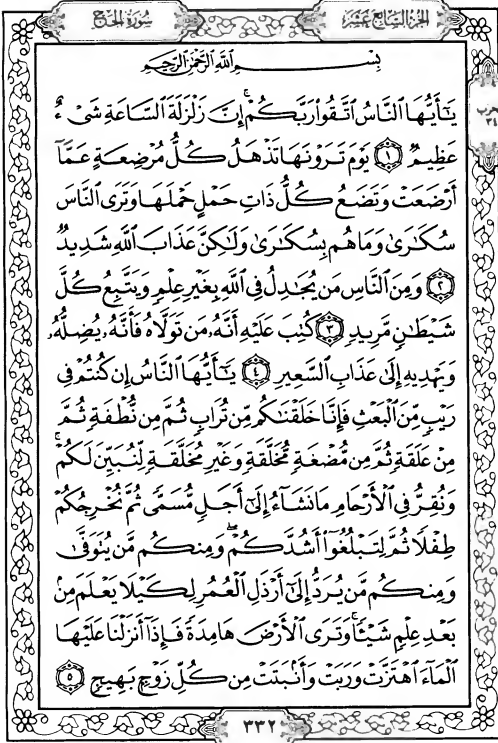 سُورَةُ الحَجِّ
الجُزْءُ السَّابِعَ عَشَرَ
بِسْمِ اللَّهِ الرَّحْمَٰنِ الرَّحِيمِ
يَٰٓأَيُّهَا ٱلنَّاسُ ٱتَّقُواْ رَبَّكُمْۚ إِنَّ زَلْزَلَةَ ٱلسَّاعَةِ شَىْءٌ
عَظِيمٌ ۝١ يَوْمَ تَرَوْنَهَا تَذْهَلُ كُلُّ مُرْضِعَةٍ عَمَّآ
أَرْضَعَتْ وَتَضَعُ كُلُّ ذَاتِ حَمْلٍ حَمْلَهَا وَتَرَى ٱلنَّاسَ
سُكَٰرَىٰ وَمَا هُم بِسُكَٰرَىٰ وَلَٰكِنَّ عَذَابَ ٱللَّهِ شَدِيدٌ
۝٢ وَمِنَ ٱلنَّاسِ مَن يُجَٰدِلُ فِى ٱللَّهِ بِغَيْرِ عِلْمٍ وَيَتَّبِعُ كُلَّ
شَيْطَٰنٍ مَّرِيدٍ ۝٣ كُتِبَ عَلَيْهِ أَنَّهُۥ مَن تَوَلَّاهُ فَأَنَّهُۥ يُضِلُّهُۥ
وَيَهْدِيهِ إِلَىٰ عَذَابِ ٱلسَّعِيرِ ۝٤ يَٰٓأَيُّهَا ٱلنَّاسُ إِن كُنتُمْ فِى
رَيْبٍ مِّنَ ٱلْبَعْثِ فَإِنَّا خَلَقْنَٰكُم مِّن تُرَابٍ ثُمَّ مِن نُّطْفَةٍ ثُمَّ
مِنْ عَلَقَةٍ ثُمَّ مِن مُّضْغَةٍ مُّخَلَّقَةٍ وَغَيْرِ مُخَلَّقَةٍ لِّنُبَيِّنَ لَكُمْۚ
وَنُقِرُّ فِى ٱلْأَرْحَامِ مَا نَشَآءُ إِلَىٰٓ أَجَلٍ مُّسَمًّى ثُمَّ نُخْرِجُكُمْ
طِفْلًا ثُمَّ لِتَبْلُغُوٓاْ أَشُدَّكُمْۖ وَمِنكُم مَّن يُتَوَفَّىٰ
وَمِنكُم مَّن يُرَدُّ إِلَىٰٓ أَرْذَلِ ٱلْعُمُرِ لِكَيْلَا يَعْلَمَ مِنۢ
بَعْدِ عِلْمٍ شَيْـًٔاۚ وَتَرَى ٱلْأَرْضَ هَامِدَةً فَإِذَآ أَنزَلْنَا عَلَيْهَا
ٱلْمَآءَ ٱهْتَزَّتْ وَرَبَتْ وَأَنۢبَتَتْ مِن كُلِّ زَوْجٍۭ بَهِيجٍ ۝٥
٣٣٢